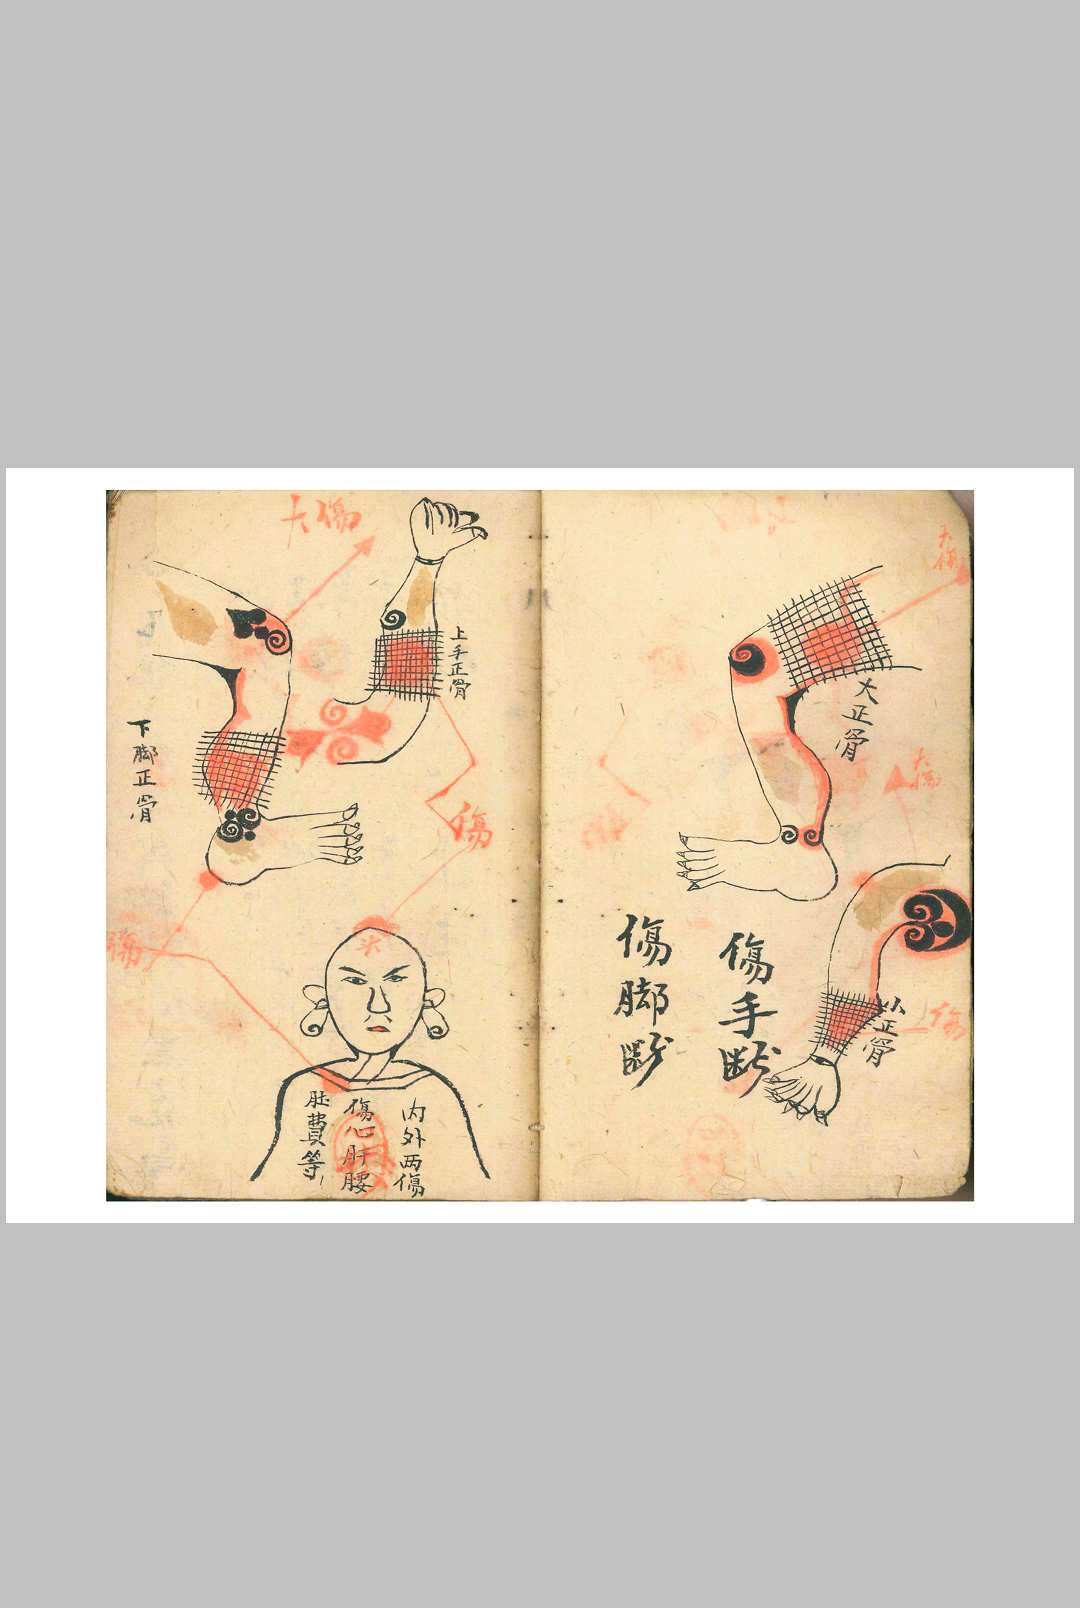 大傷
大正骨
大傷
傷
以正骨
傷手断
傷脚断
上手正骨
大傷
傷
下脚正骨
傷
内外两傷
傷心肝腰
肚費等